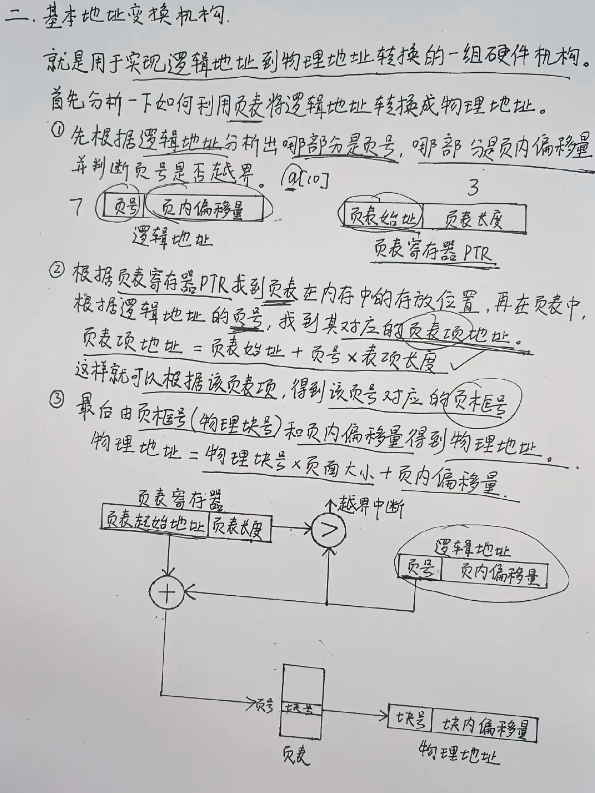 二. 基本地址变换机构.
就是用于实现逻辑地址到物理地址转换的一组硬件机构。
首先分析一下如何利用页表将逻辑地址转换成物理地址。
① 先根据逻辑地址分析出哪部分是页号，哪部分是页内偏移量
并判断页号是否越界。 a[10]
3
7 页号 页内偏移量
页表始址 页表长度
逻辑地址
页表寄存器PTR
② 根据页表寄存器PTR找到页表在内存中的存放位置，再在页表中，
根据逻辑地址的页号，找到其对应的页表项地址。
页表项地址 = 页表始址 + 页号 × 表项长度
这样就可以根据该页表项，得到该页号对应的页框号
③ 最后由页框号(物理块号)和页内偏移量得到物理地址。
物理地址 = 物理块号 × 页面大小 + 页内偏移量.
页表寄存器
越界中断
页表起始地址 页表长度
>
逻辑地址
页号 页内偏移量
+
页号 块号
块号 块内偏移量
页表
物理地址